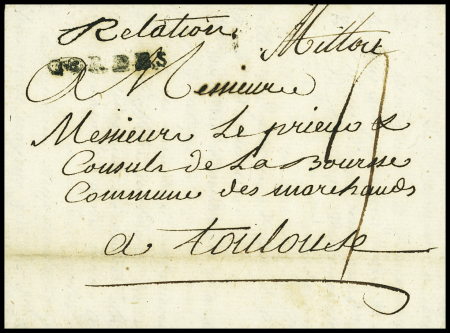 Relation
TARBES
A Messieurs
Messieurs Le prieur &
Consuls de La Bourse
Commune des marchands
a toulouse